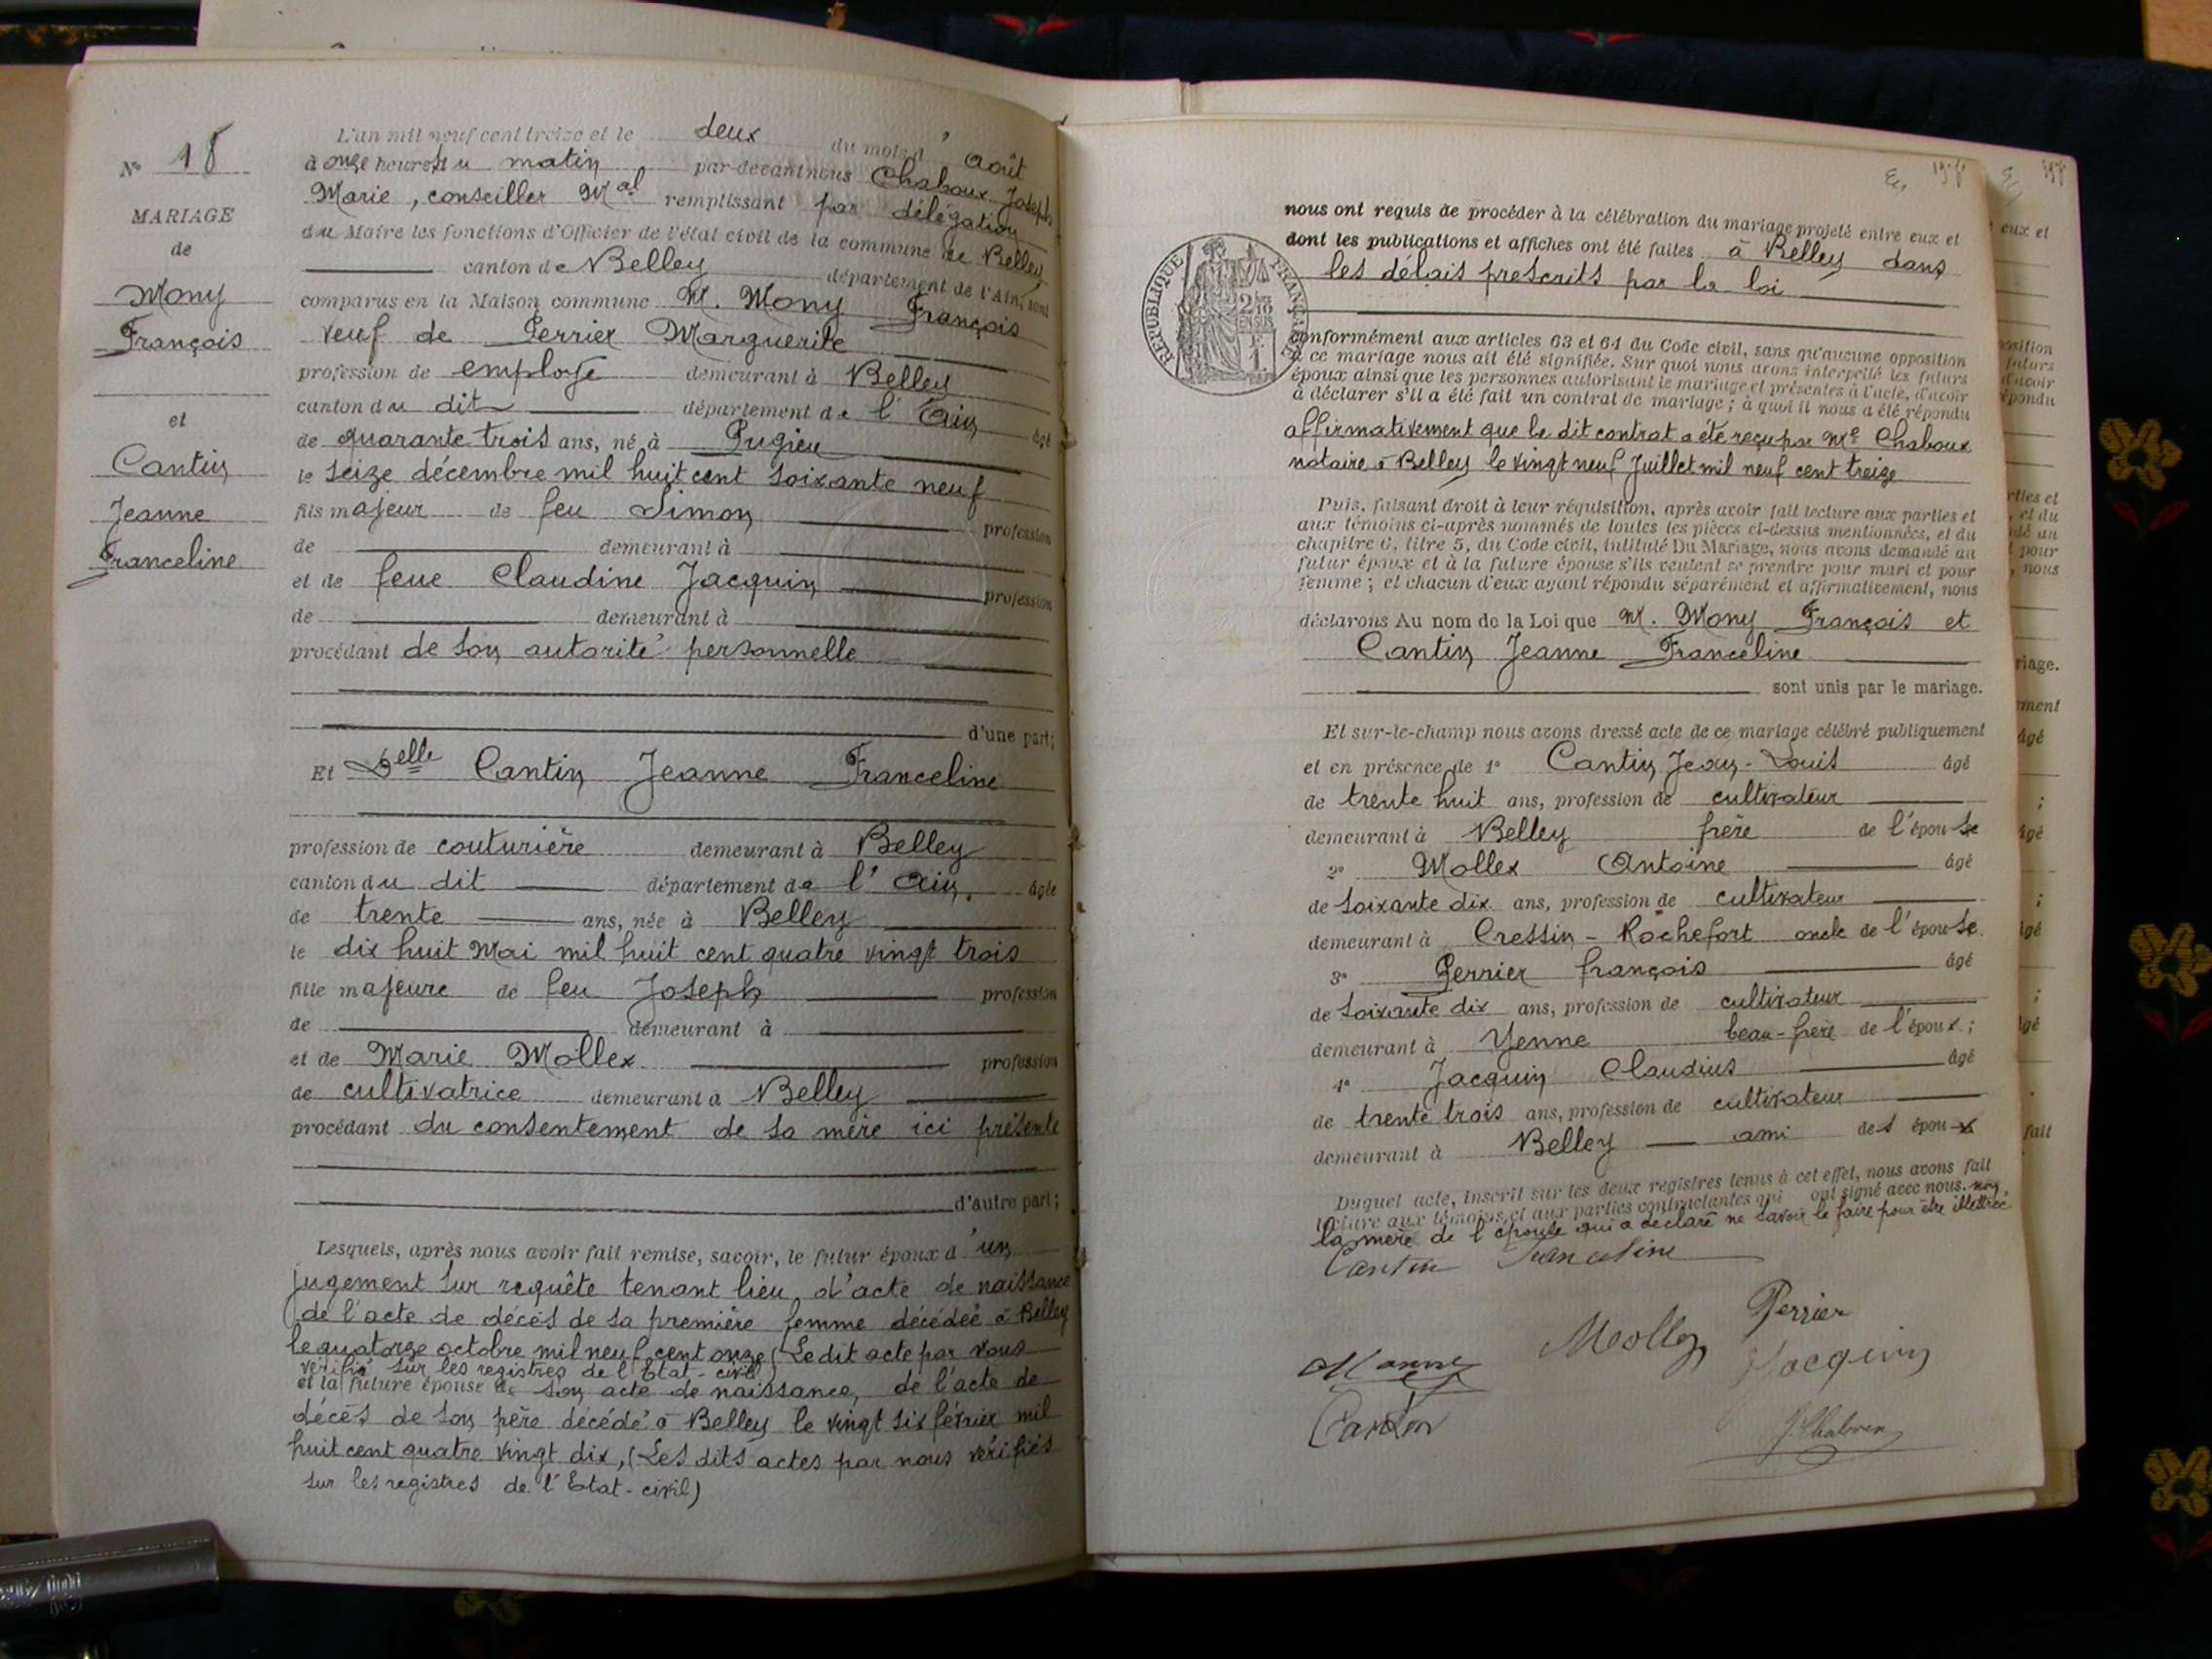 N° 18
MARIAGE
de
Mony
François
et
Cantin
Jeanne
Franceline
L'an mil neuf cent treize et le deux du mois d'Août
à onze heures du matin par-devant nous Chaboux Joseph
Marie, conseiller Mal remplissant par délégation
du Maire les fonctions d'Officier de l'état civil de la commune de Belley
canton de Belley département de l'Ain, sont
comparus en la Maison commune M. Mony François
veuf de Perrier Marguerite
profession de employé demeurant à Belley
canton du dit département de l'Ain âgé
de quarante trois ans, né à Pugieu
le seize décembre mil huit cent soixante neuf
fils majeur de feu Simon profession
de demeurant à
et de feue Claudine Jacquin profession
de demeurant à
procédant de son autorité personnelle
d'une part;
Et Delle Cantin Jeanne Franceline
profession de couturière demeurant à Belley
canton du dit département de l'Ain. âgée
de trente ans, née à Belley
le dix huit Mai mil huit cent quatre vingt trois
fille majeure de feu Joseph profession
de demeurant à
et de Marie Mollex profession
de cultivatrice demeurant à Belley
procédant du consentement de sa mère ici présente
d'autre part;
Lesquels, après nous avoir fait remise, savoir, le futur époux d'un
jugement sur requête tenant lieu d'acte de naissance
de l'acte de décès de sa première femme décédée à Belley
le quatorze octobre mil neuf cent onze (Le dit acte par nous
vérifié sur les registres de l'Etat-civil)
et la future épouse de son acte de naissance, de l'acte de
décès de son père décédé à Belley le vingt six février mil
huit cent quatre vingt dix, (Les dits actes par nous vérifiés
sur les registres de l'Etat-civil)
nous ont requis de procéder à la célébration du mariage projeté entre eux et
dont les publications et affiches ont été faites à Belley dans
les délais prescrits par la loi
RÉPUBLIQUE FRANÇAISE
conformément aux articles 63 et 64 du Code civil, sans qu'aucune opposition
à ce mariage nous ait été signifiée. Sur quoi nous avons interpellé les futurs
époux ainsi que les personnes autorisant le mariage et présentes à l'acte, d'avoir
à déclarer s'il a été fait un contrat de mariage; à quoi il nous a été répondu
affirmativement que le dit contrat a été reçu par Me Chaboux
notaire à Belley le vingt neuf Juillet mil neuf cent treize
Puis, faisant droit à leur réquisition, après avoir fait lecture aux parties et
aux témoins ci-après nommés de toutes les pièces ci-dessus mentionnées, et du
chapitre 6, titre 5, du Code civil, intitulé Du Mariage, nous avons demandé au
futur époux et à la future épouse s'ils veulent se prendre pour mari et pour
femme; et chacun d'eux ayant répondu séparément et affirmativement, nous
déclarons Au nom de la Loi que M. Mony François et
Cantin Jeanne Franceline
sont unis par le mariage.
Et sur-le-champ nous avons dressé acte de ce mariage célébré publiquement
et en présence de 1° Cantin Jean-Louis âgé
de trente huit ans, profession de cultivateur
demeurant à Belley frère de l'épouse
2° Mollex Antoine âgé
de soixante dix ans, profession de cultivateur ;
demeurant à Cressin-Rochefort oncle de l'épouse
3° Perrier françois âgé
de soixante dix ans, profession de cultivateur
demeurant à Yenne beau-frère de l'époux;
4° Jacquin Claudius âgé
de trente trois ans, profession de cultivateur
demeurant à Belley ami des époux
Duquel acte, inscrit sur les deux registres tenus à cet effet, nous avons fait
lecture aux témoins et aux parties contractantes qui ont signé avec nous. non
la mère de l'épouse qui a déclaré ne savoir le faire pour être illettrée
Cantin Franceline
Perrier
Mollex
Jacquin
Cantin